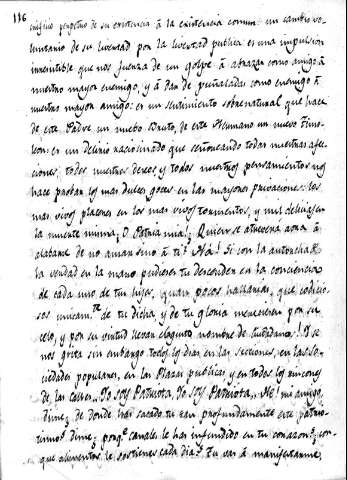 116
crificio perpetuo de su existencia á la existencia comun: un cambio vo-
luntario de su libertad por la libertad publica: es una impulsion
irresistible que nos fuerza de un golpe á abrazar como amigo á
nuestro mayor enemigo, y á dar de puñaladas como enemigo á
nuestro mayor amigo: es un sentimiento sobrenatural que hace
de este Padre un nuebo Bruto, de este Hermano un nuevo Timo-
leon: es un delirio racionado que trastornando todas nuestras afec-
ciones, todos nuestros deseos, y todos nuestros pensamientos nos
hace probar los mas dulces goces en las mayores privaciones: los
mas vivos placeres en los mas vivos tormentos, y mil delicias en
la muerte misma. O Patria mia! Quien se atrevera aora á
alabarme de no amar sino á ti? Ha! Si con la antorcha de
la verdad en la mano pudieses tu descender en la conciencia
de cada uno de tus hijos, quan pocos hallarias, que codicio-
sos unicam.te de tu dicha y de tu gloria mereciesen por su
celo, y por su virtud llevar el augusto nombre de Ciudadanos! Y se
nos grita sin embargo todos los dias en las Secciones, en las So-
ciedades populares, en las Plazas publicas y en todos los rincones
de las calles... Yo soy Patriota, Yo soy Patriota... He! mi amigo,
dime, de donde has sacado tu tan profundamente este patrio-
tismo? dime, porq.e canales le has infundido en tu corazon? con
que alimentos le sostienes cada dia? Tu vas á manifestarme,